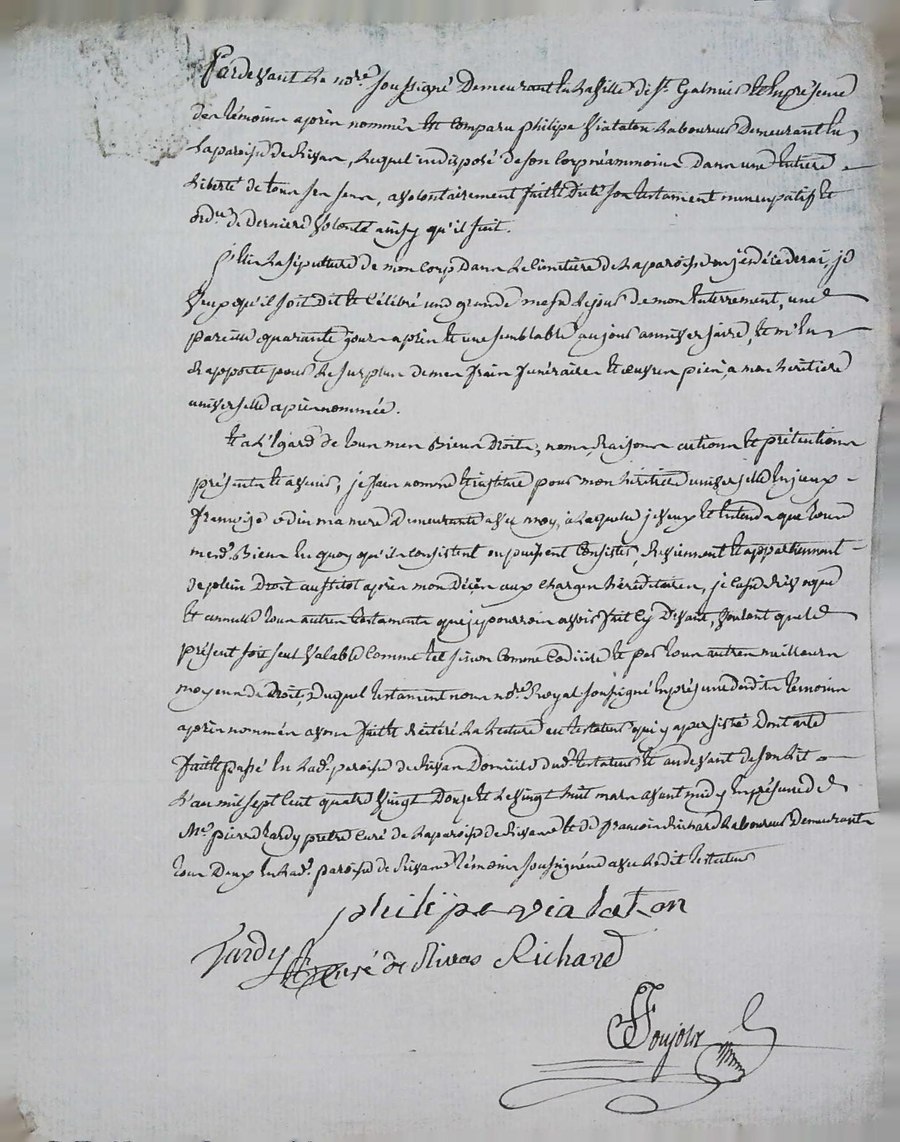 Pardevant Le no.re soussigné Demeurant en La Ville de s.t Galmier et En présence
des témoins après nommés est comparu philipe Viataton Laboureur Demeurant En
La paroisse de Rivas, Lequel indisposé de son corps néammoins dans une Entiere
Liberté de tous ses sens, a volontairement fait et dicté son testament nuncupatif et
ord.re de derniere volonté ainsy qu'il suit.
J'Elis La sépulture de mon corps dans Le cimetiere de La paroisse ou je décederai, je
Veux qu'il soit dit et célébré une grande messe Le jour de mon Enterrement, une
pareille quarante jours après et une semblable au jour anniversaire, et m'En
Rapporte pour Le surplus de mes frais funéraires et œuvres pies, a mon héritiere
universelle après nommée.
Et a L'Egard de tous mes Biens Droits, noms, Raisons actions et prétentions
présents et avenir, je fais nomme et institue pour mon héritiere universelle Enjeux
françoise odin ma mere Demeurante avec moy, a Laquelle je veux et Entends que tous
mesd. Biens En quoy qu'ils consistent ou puissent consister, Reviennent et appartiennent
de plein Droit aussitot après mon Décès aux charges héréditaires, je casse révoque
et annulle tous autres testaments que je pourrois avoir fait cy Devant, voulant que Le
présent soit seul valable comme tel sinon comme codicile et par tous autres meilleurs
moyens de Droit, Duquel testament nous no.re Royal soussigné En présence desdits témoins
après nommés avons fait et réitéré La Lecture au testateur qui y a persisté Dont acte
fait et passé En Lad. paroisse de Rivas Domicile dud. testateur et au devant de son Lit
L'an mil sept cent quatre Vingt Douze et Le Vingt huit mars avant midy En présence de
M.re pierre tardy prêtre curé de La paroisse de Rivas et de françois Richard Laboureur demeurants
tous Deux En Lad. paroisse de Rivas témoins soussignés avec Ledit testateur
philipe viataton
Tardy curé de Rivas Richard
Foujols